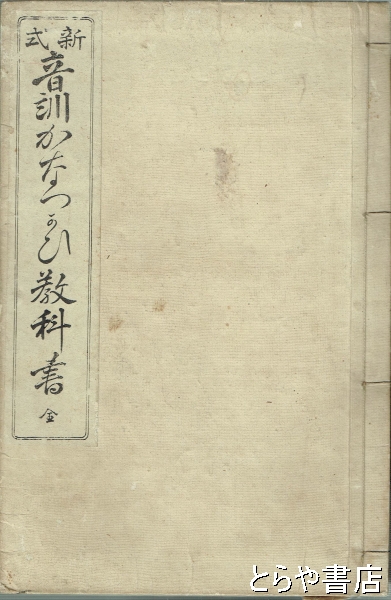 新式
音訓かなつかひ教科書
全
とらや書店